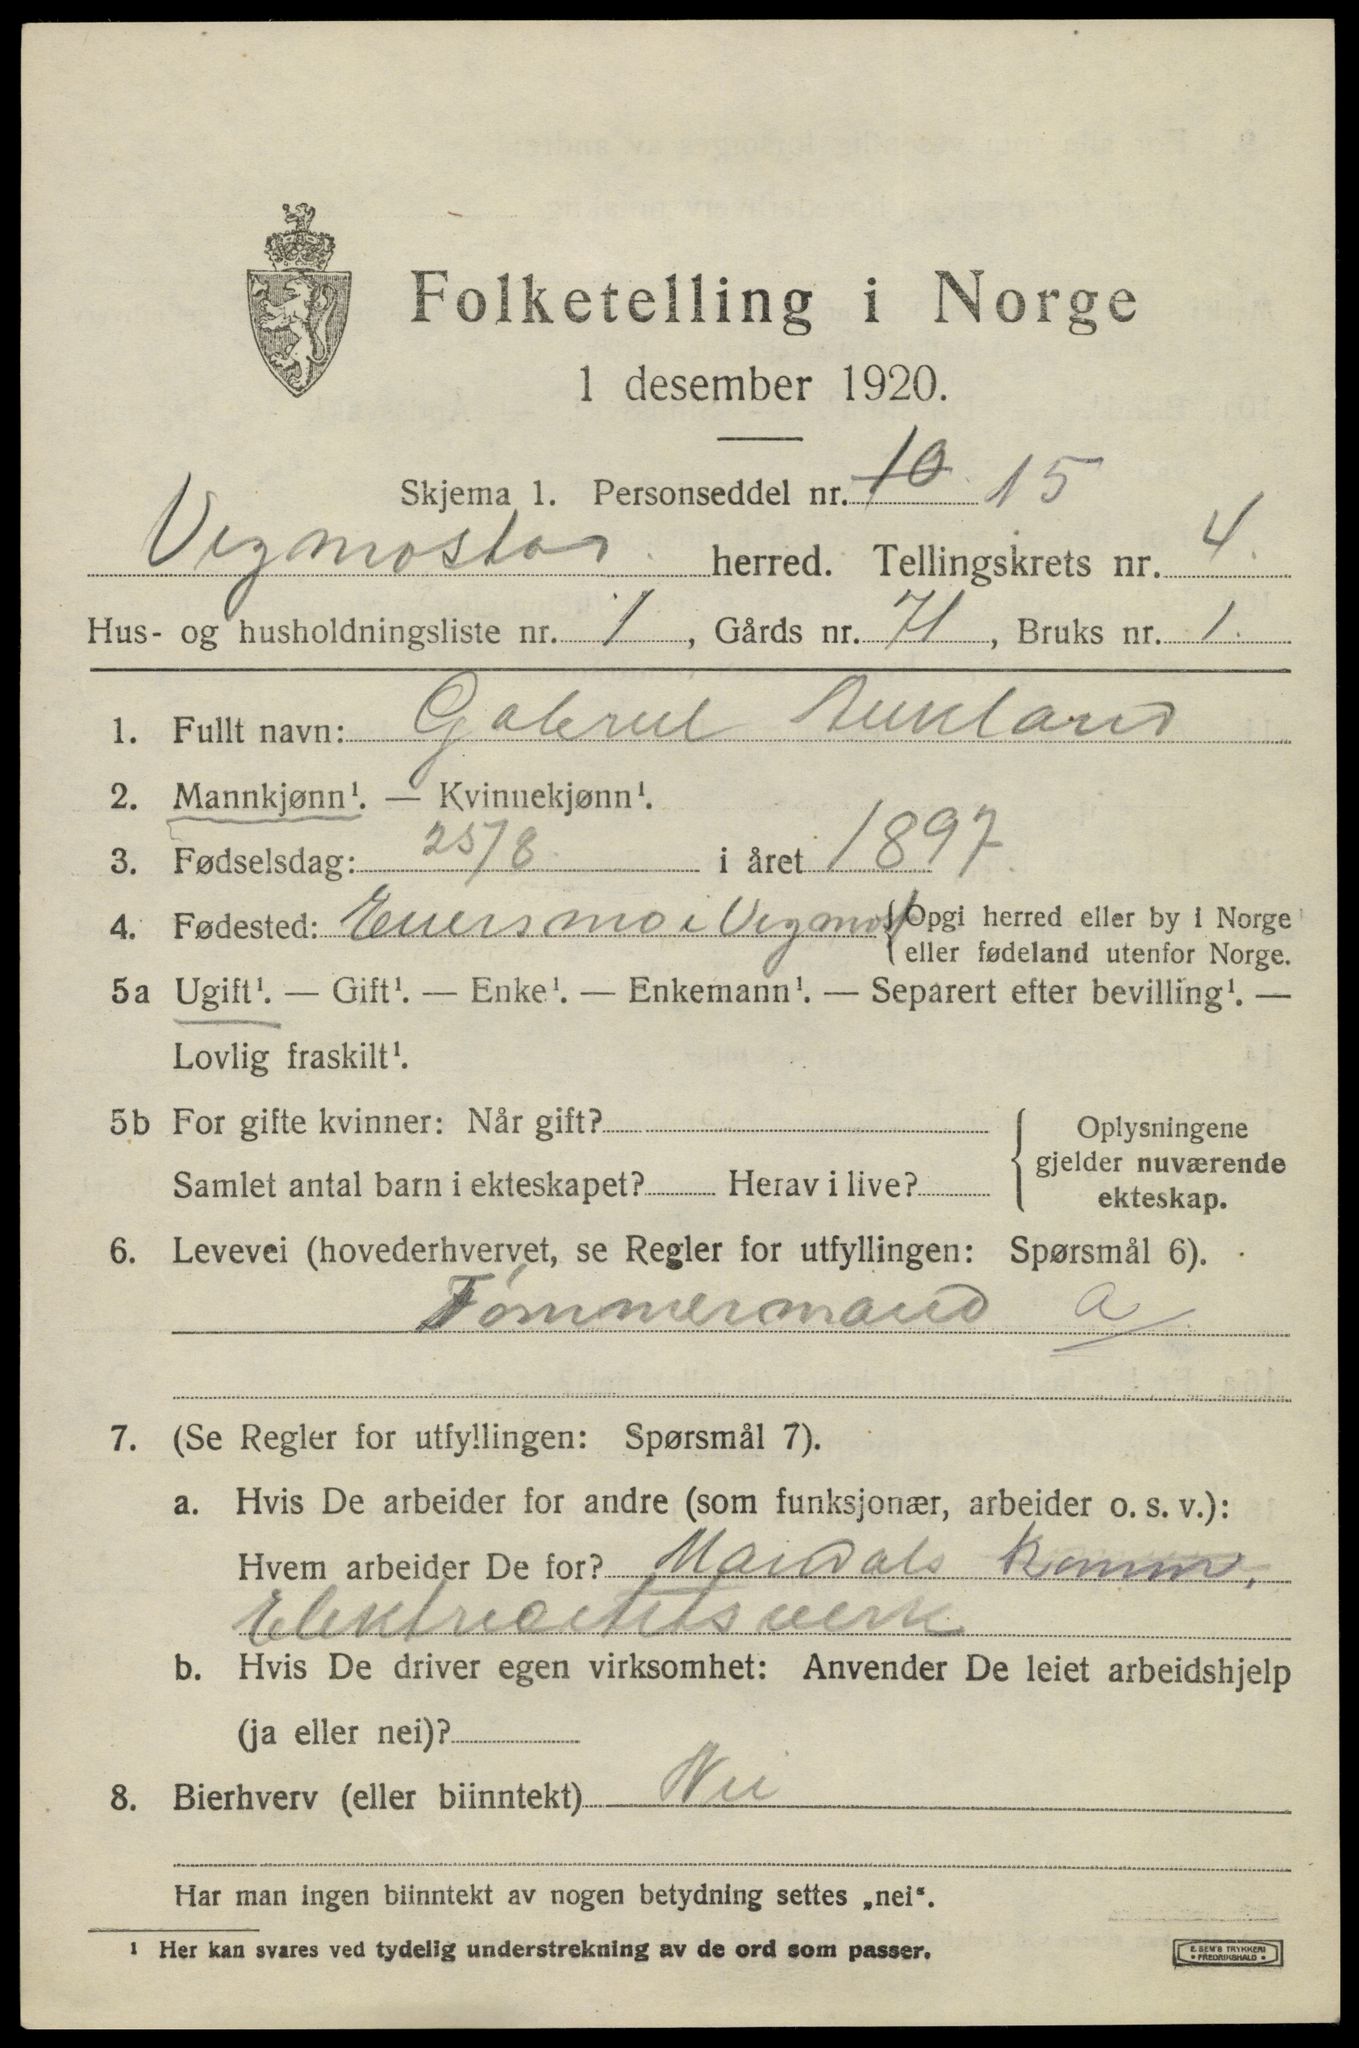 Folketelling i Norge
1 desember 1920.
Skjema 1. Personseddel nr. 10 15
Vegmostad herred. Tellingskrets nr. 4.
Hus- og husholdningsliste nr. 1, Gårds nr. 71, Bruks nr. 1.
1. Fullt navn: Gabriel Aukland
2. Mannkjønn¹. — Kvinnekjønn¹.
3. Fødselsdag: 25/8 i året 1897.
4. Fødested: i Vegmost {Opgi herred eller by i Norge
eller fødeland utenfor Norge.
5a Ugift¹. — Gift¹. — Enke¹. — Enkemann¹. — Separert efter bevilling¹. —
Lovlig fraskilt¹.
5b For gifte kvinner: Når gift?
Samlet antal barn i ekteskapet? Herav i live?
Oplysningene
gjelder nuværende
ekteskap.
6. Levevei (hovederhvervet, se Regler for utfyllingen: Spørsmål 6).
Tømmermand a
7. (Se Regler for utfyllingen: Spørsmål 7).
a. Hvis De arbeider for andre (som funksjonær, arbeider o. s. v.):
Hvem arbeider De for? Mandals komm.
Elektricitetsverk
b. Hvis De driver egen virksomhet: Anvender De leiet arbeidshjelp
(ja eller nei)?
8. Bierhverv (eller biinntekt) Nei
Har man ingen biinntekt av nogen betydning settes „nei“.
¹ Her kan svares ved tydelig understrekning av de ord som passer.
E. SEM'S TRYKKERI
• FREDRIKSHALD •